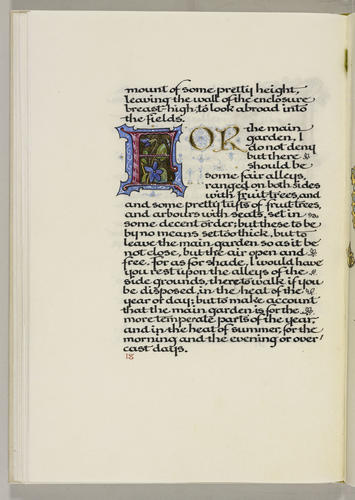 mount of some pretty height,
leaving the wall of the enclosure
breast-high, to look abroad into
the fields.
FOR the main
garden, I
do not deny
but there
should be
some fair alleys,
ranged on both sides
with fruit trees, and
and some pretty tufts of fruit trees,
and arbours with seats, set in
some decent order; but these to be
by no means set too thick, but to
leave the main garden so as it be
not close, but the air open and
free. for as for shade, I would have
you rest upon the alleys of the
side grounds, there to walk if you
be disposed, in the heat of the
year or day; but to make account
that the main garden is for the
more temperate parts of the year,
and in the heat of summer, for the
morning and the evening or over
cast days.
18